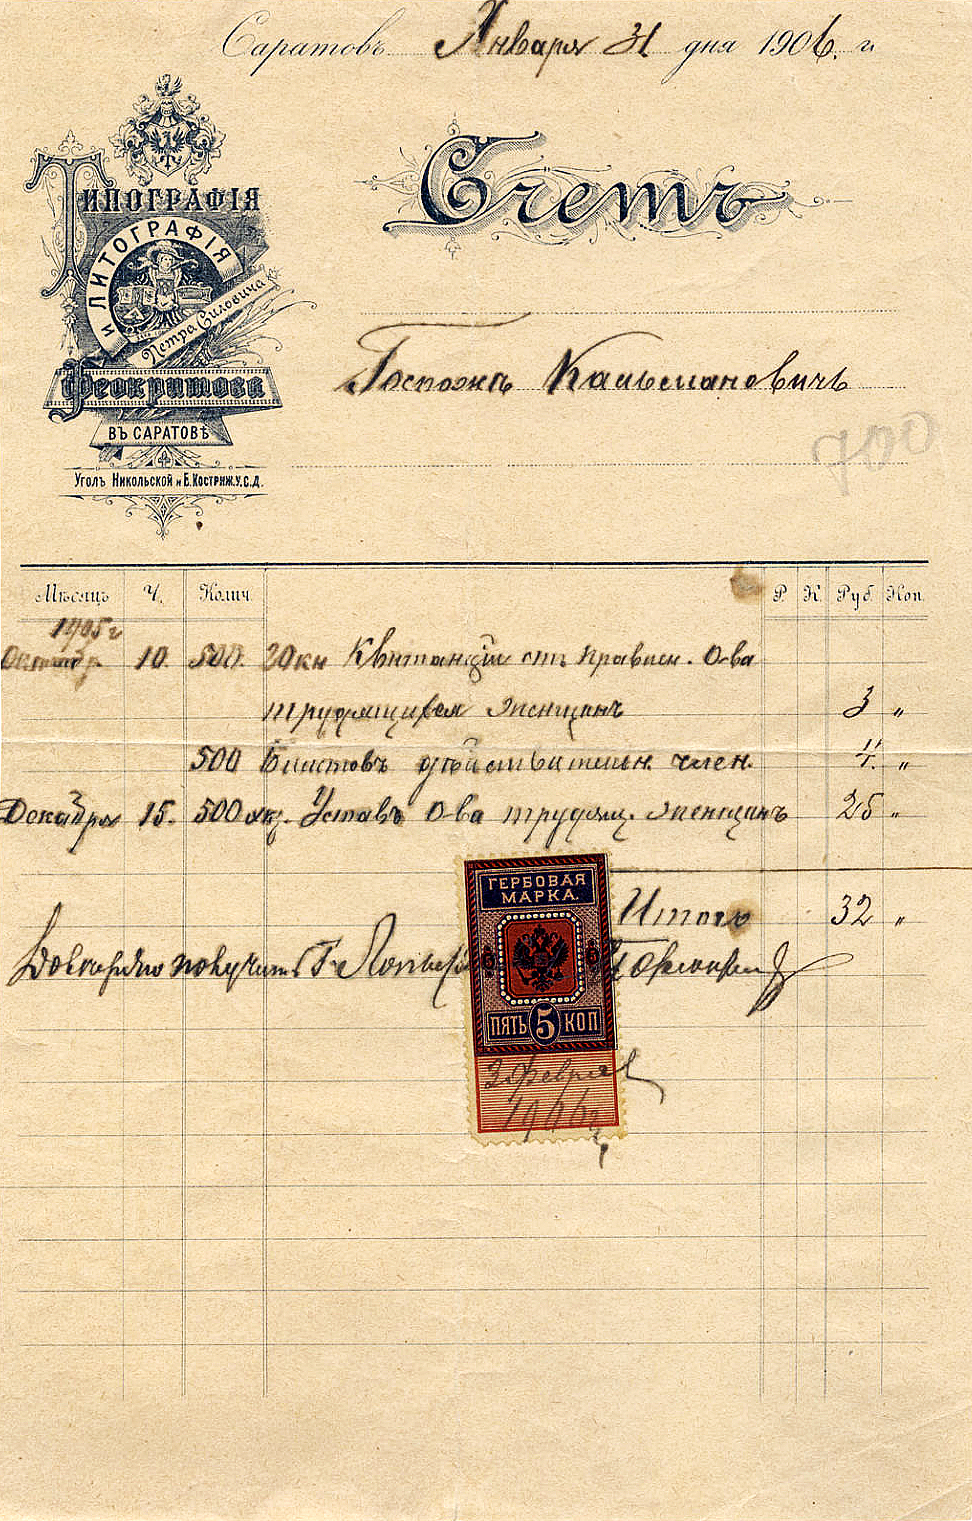 Саратовъ Января 31 дня 1906 г.
Типографія
и Литографія
Петра Силовича
Феокритова
въ Саратовѣ
Уголъ Никольской и Б.Костриж.у.с.д.
Счетъ
Госпожѣ Кальмановичъ
700
Мѣсяцъ Ч. Колич. Р. К. Руб. Коп.
1905 г
Октября 10. 500. 20 кн Квитанцій отъ Правлен. О-ва
трудящихся женщинъ 3 "
500 Билетовъ дѣйствительн. член. 4. "
Декабря 15. 500 экз. Уставъ О-ва трудящ. женщинъ 25 "
Итого 32 "
Довѣряю получить Г.
ГЕРБОВАЯ
МАРКА.
5 5
ПЯТЬ 5 КОП
3 февраля
1906 г